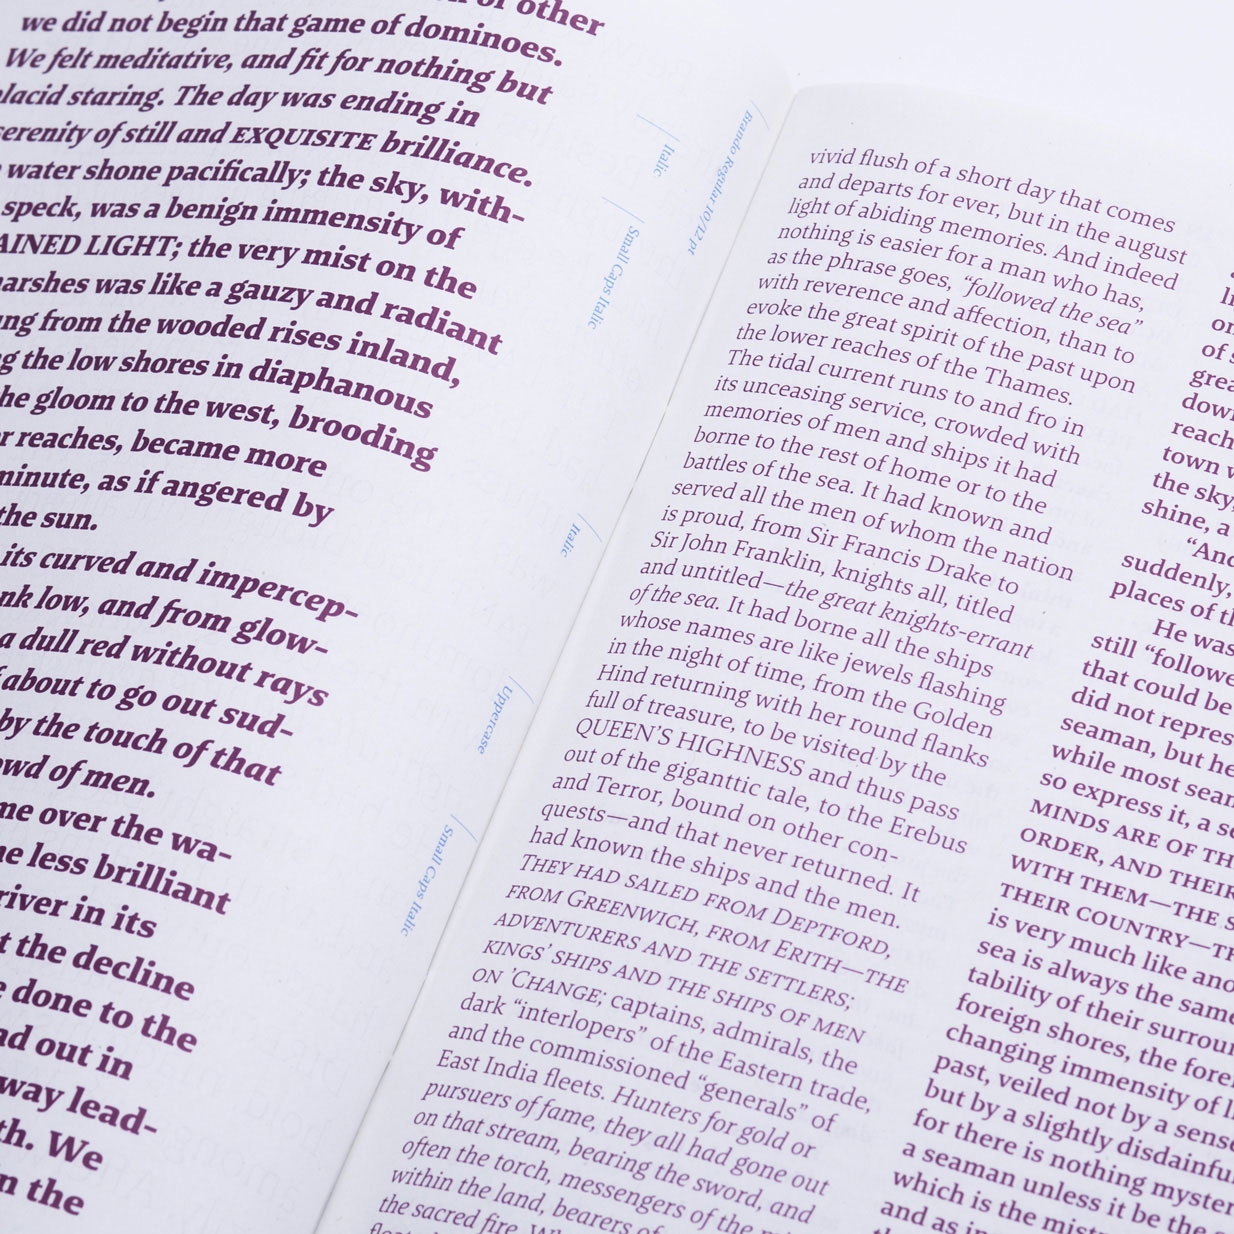 of other
we did not begin that game of dominoes.
We felt meditative, and fit for nothing but
placid staring. The day was ending in
serenity of still and EXQUISITE brilliance.
water shone pacifically; the sky, with-
speck, was a benign immensity of
AINED LIGHT; the very mist on the
marshes was like a gauzy and radiant
ung from the wooded rises inland,
ng the low shores in diaphanous
he gloom to the west, brooding
er reaches, became more
minute, as if angered by
the sun.
its curved and impercep-
nk low, and from glow-
a dull red without rays
about to go out sud-
by the touch of that
owd of men.
me over the wa-
ne less brilliant
river in its
t the decline
e done to the
ad out in
way lead-
th. We
n the
Brando Regular 10/12 pt
Italic
Small Caps Italic
Italic
Uppercase
Small Caps Italic
vivid flush of a short day that comes
and departs for ever, but in the august
light of abiding memories. And indeed
nothing is easier for a man who has,
as the phrase goes, “followed the sea”
with reverence and affection, than to
evoke the great spirit of the past upon
the lower reaches of the Thames.
The tidal current runs to and fro in
its unceasing service, crowded with
memories of men and ships it had
borne to the rest of home or to the
battles of the sea. It had known and
served all the men of whom the nation
is proud, from Sir Francis Drake to
Sir John Franklin, knights all, titled
and untitled—the great knights-errant
of the sea. It had borne all the ships
whose names are like jewels flashing
in the night of time, from the Golden
Hind returning with her round flanks
full of treasure, to be visited by the
QUEEN’S HIGHNESS and thus pass
out of the giganttic tale, to the Erebus
and Terror, bound on other con-
quests—and that never returned. It
had known the ships and the men.
THEY HAD SAILED FROM DEPTFORD,
FROM GREENWICH, FROM ERITH—THE
ADVENTURERS AND THE SETTLERS;
KINGS’ SHIPS AND THE SHIPS OF MEN
ON ’CHANGE; captains, admirals, the
dark “interlopers” of the Eastern trade,
and the commissioned “generals” of
East India fleets. Hunters for gold or
pursuers of fame, they all had gone out
on that stream, bearing the sword, and
often the torch, messengers of the
within the land, bearers of
the sacred fire.
li
on
of s
grea
down
reach
town
the sky,
shine, a
“And
suddenly,
places of th
He was
still “followe
that could be
did not repres
seaman, but he
while most sea
so express it, a se
MINDS ARE OF TH
ORDER, AND THEIR
WITH THEM—THE S
THEIR COUNTRY—TH
is very much like ano
sea is always the same
tability of their surrou
foreign shores, the fore
changing immensity of li
past, veiled not by a sense
but by a slightly disdainfu
for there is nothing myster
a seaman unless it be the
which is the mist
and as in